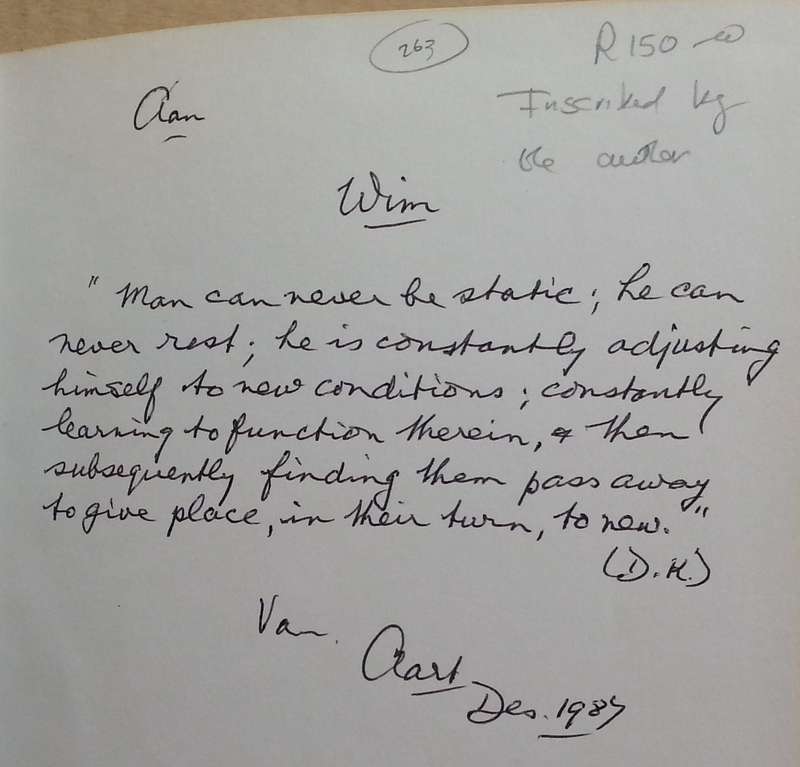 263
R150 -
Inscribed by
the author
Aan
Wim
" Man can never be static; he can
never rest; he is constantly adjusting
himself to new conditions; constantly
learning to function therein, & then
subsequently finding them pass away
to give place, in their turn, to new."
(D.K.)
Van.
Aart
Des. 1987